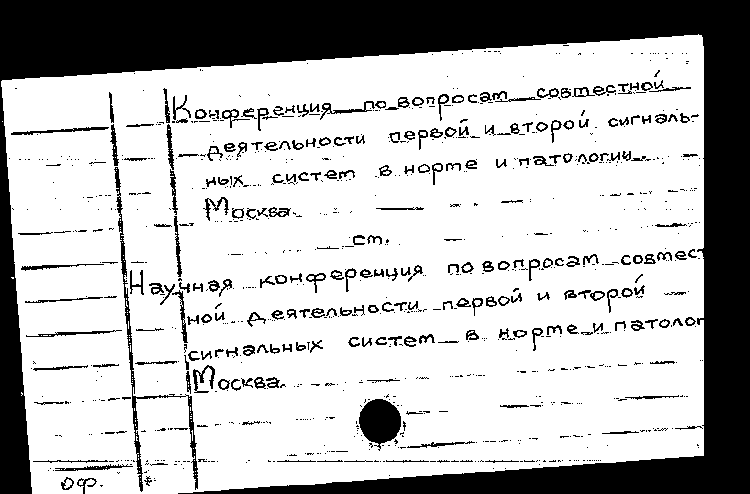 Конференция по вопросам совместной
деятельности первой и второй сигналь-
ных систем в норме и патологии.
Москва.
см.
Научная конференция по вопросам совмест
ной деятельности первой и второй
сигнальных систем в норме и патолог
Москва.
оф.